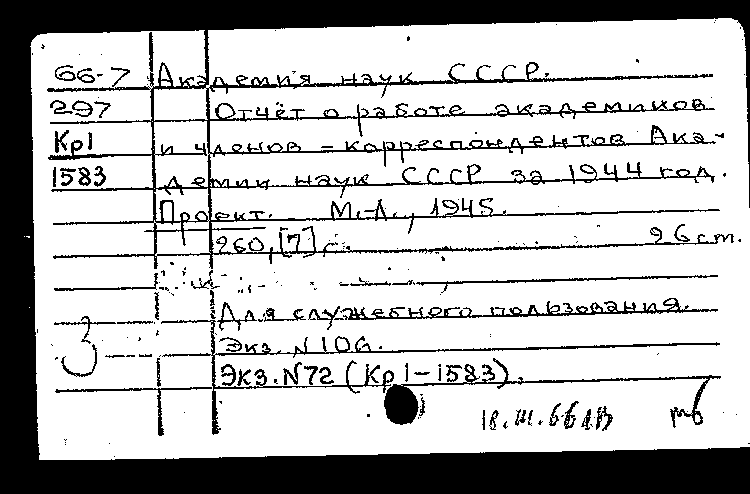 66-7 Академия наук СССР.
297 Отчёт о работе академиков
Кр1 и членов = корреспондентов Ака-
1583 демии наук СССР за 1944 год.
Проект. М.-Л., 1945.
260, [7] с. 26 cm.
Для служебного пользования.
3 Экз. N 106.
Экз. N 72 (Кр1-1583).
18.III.66